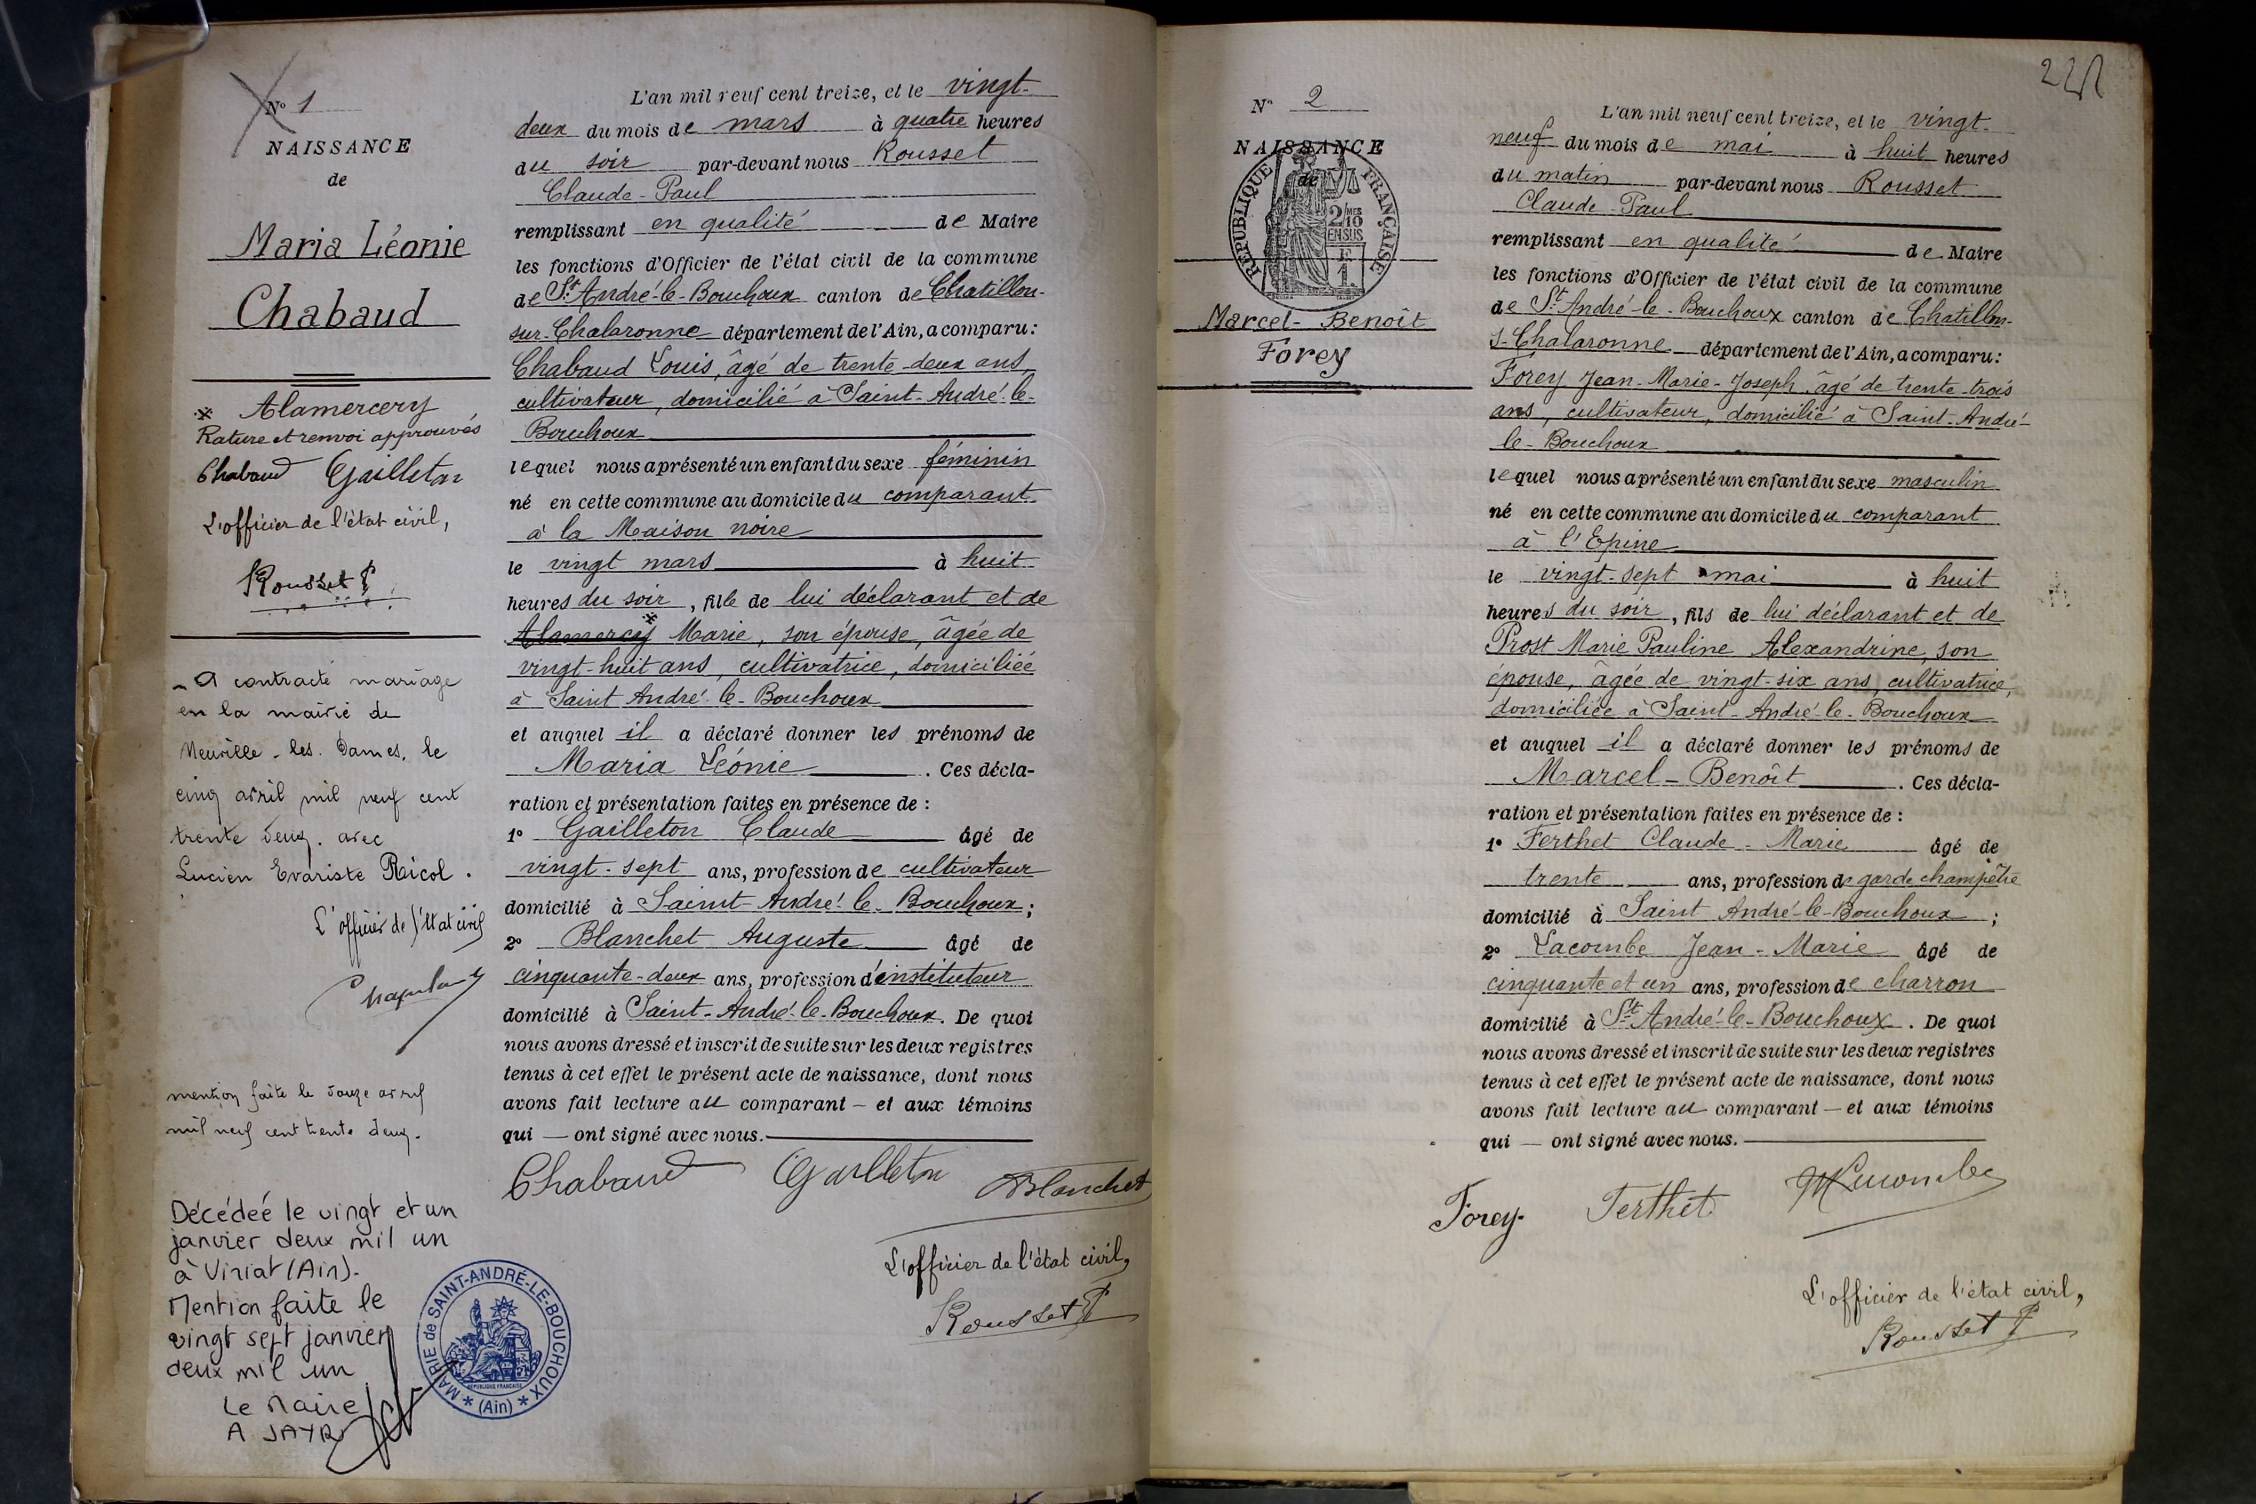 N° 1
NAISSANCE
de
Maria Léonie
Chabaud
* Alamercery
Rature et renvoi approuvés
Chabaud Gailleton
L'officier de l'état civil,
Rousset P
A contracté mariage
en la mairie de
Neuville-les-Dames, le
cinq avril mil neuf cent
trente deux. avec
Lucien Evariste Ricol.
L'officier de l'état civil
mention faite le douze avril
mil neuf cent trente deux.
Décédeé le vingt et un
janvier deux mil un
à Viriat (Ain).
Mention faite le
vingt sept janvier
deux mil un
Le Maire
A JAYR
MAIRIE de SAINT-ANDRÉ-LE-BOUCHOUX
RÉPUBLIQUE FRANÇAISE
* (Ain) *
L'an mil neuf cent treize, et le vingt-
deux du mois de mars à quatre heures
du soir par-devant nous Rousset
Claude-Paul
remplissant en qualité de Maire
les fonctions d'Officier de l'état civil de la commune
de St André-le-Bouchoux canton de Chatillon-
sur-Chalaronne département de l'Ain, a comparu:
Chabaud Louis, âgé de trente-deux ans,
cultivateur, domicilié à Saint-André-le-
Bouchoux
lequel nous a présenté un enfant du sexe féminin
né en cette commune au domicile du comparant
à la Maison noire
le vingt mars à huit
heures du soir, fille de lui déclarant et de
Alamercey * Marie, son épouse, âgée de
vingt-huit ans, cultivatrice, domiciliée
à Saint André-le-Bouchoux
et auquel il a déclaré donner les prénoms de
Maria Léonie. Ces décla-
ration et présentation faites en présence de :
1° Gailleton Claude âgé de
vingt-sept ans, profession de cultivateur
domicilié à Saint-André-le-Bouchoux;
2° Blanchet Auguste âgé de
cinquante-deux ans, profession d'instituteur
domicilié à Saint-André-le-Bouchoux. De quoi
nous avons dressé et inscrit de suite sur les deux registres
tenus à cet effet le présent acte de naissance, dont nous
avons fait lecture au comparant — et aux témoins
qui — ont signé avec nous.
Chabaud Gailleton Blanchet
L'officier de l'état civil,
Rousset P
N° 2
NAISSANCE
de
RÉPUBLIQUE FRANÇAISE
2/10 MES
EN SUS
F.
1.
Marcel-Benoît
Forey
L'an mil neuf cent treize, et le vingt-
neuf du mois de mai à huit heures
du matin par-devant nous Rousset
Claude Paul
remplissant en qualité de Maire
les fonctions d'Officier de l'état civil de la commune
de St André-le-Bouchoux canton de Chatillon-
s-Chalaronne département de l'Ain, a comparu:
Forey Jean-Marie-Joseph, âgé de trente-trois
ans, cultivateur, domicilié à Saint-André-
le-Bouchoux
lequel nous a présenté un enfant du sexe masculin
né en cette commune au domicile du comparant
à l'Epine
le vingt-sept mai à huit
heures du soir, fils de lui déclarant et de
Prost Marie Pauline Alexandrine, son
épouse, âgée de vingt-six ans, cultivatrice,
domiciliée à Saint-André-le-Bouchoux
et auquel il a déclaré donner les prénoms de
Marcel-Benoît. Ces décla-
ration et présentation faites en présence de :
1° Ferthet Claude-Marie âgé de
trente ans, profession de garde champêtre
domicilié à Saint André-le-Bouchoux ;
2° Lacombe Jean-Marie âgé de
cinquante et un ans, profession de charron
domicilié à St André-le-Bouchoux. De quoi
nous avons dressé et inscrit de suite sur les deux registres
tenus à cet effet le présent acte de naissance, dont nous
avons fait lecture au comparant — et aux témoins
qui — ont signé avec nous.
Forey Ferthet Lacombe
L'officier de l'état civil,
Rousset P